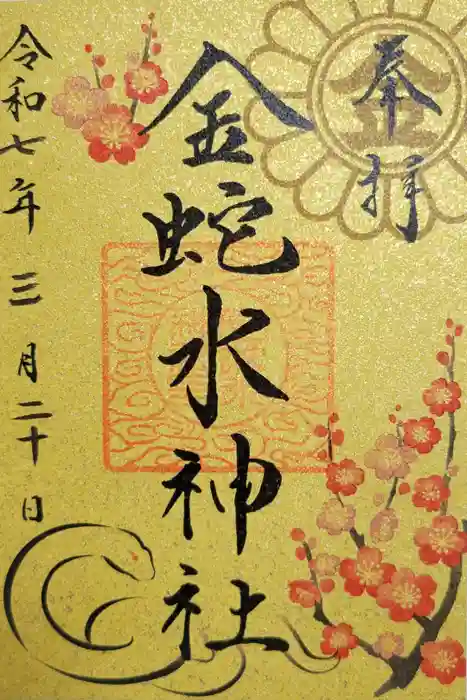 奉拝
金蛇水神社
令和七年三月二十日